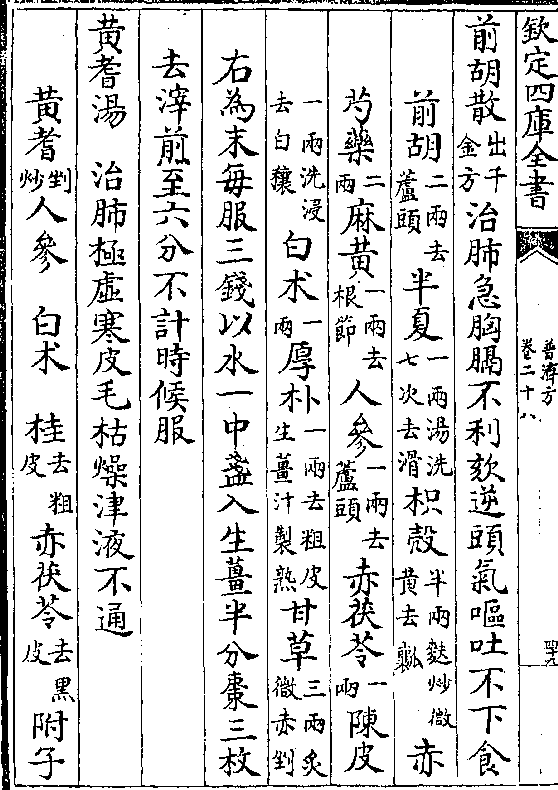 欽定四庫全書
普濟方
卷二十八
前胡散出千金方治肺急胸膈不利欬逆頭氣嘔吐不下食
前胡二兩去蘆頭半夏一兩湯洗七次去滑枳殼半兩麩炒微黄去瓤赤
芍藥二兩麻黄一兩去根節人參一兩去蘆頭赤茯苓一兩陳皮
一兩洗浸去白穰白术一兩厚朴一兩去粗皮生薑汁製熟甘草三兩炙微赤剉
右為末每服三錢以水一中盞入生薑半分棗三枚
去滓煎至六分不計時候服
黄耆湯 治肺極虛寒皮毛枯燥津液不通
黄耆剉炒人參 白术 桂去粗皮赤茯苓去黑皮附子